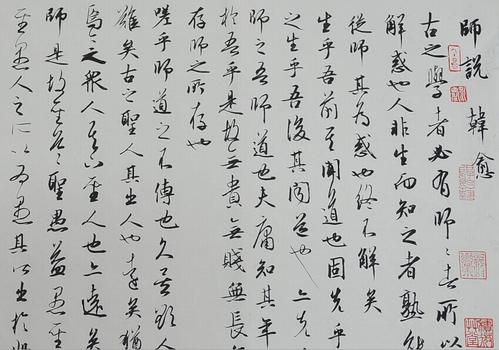 師說 韓愈
古之學者必有師々者所以
解惑也人非生而知之者孰能
從師其為惑也終不解矣
生乎吾前其聞道也固先乎
之生乎吾後其聞道也亦先
師之吾師道也夫庸知其年
於吾乎是故無貴無賤無長
存師之所存也
嗟乎師道之不傳也久矣欲人
難矣古之聖人其出人也遠矣猶
焉今之眾人其下聖人也亦遠矣
師是故聖益聖愚益愚聖
愚人之所以為愚其皆出於